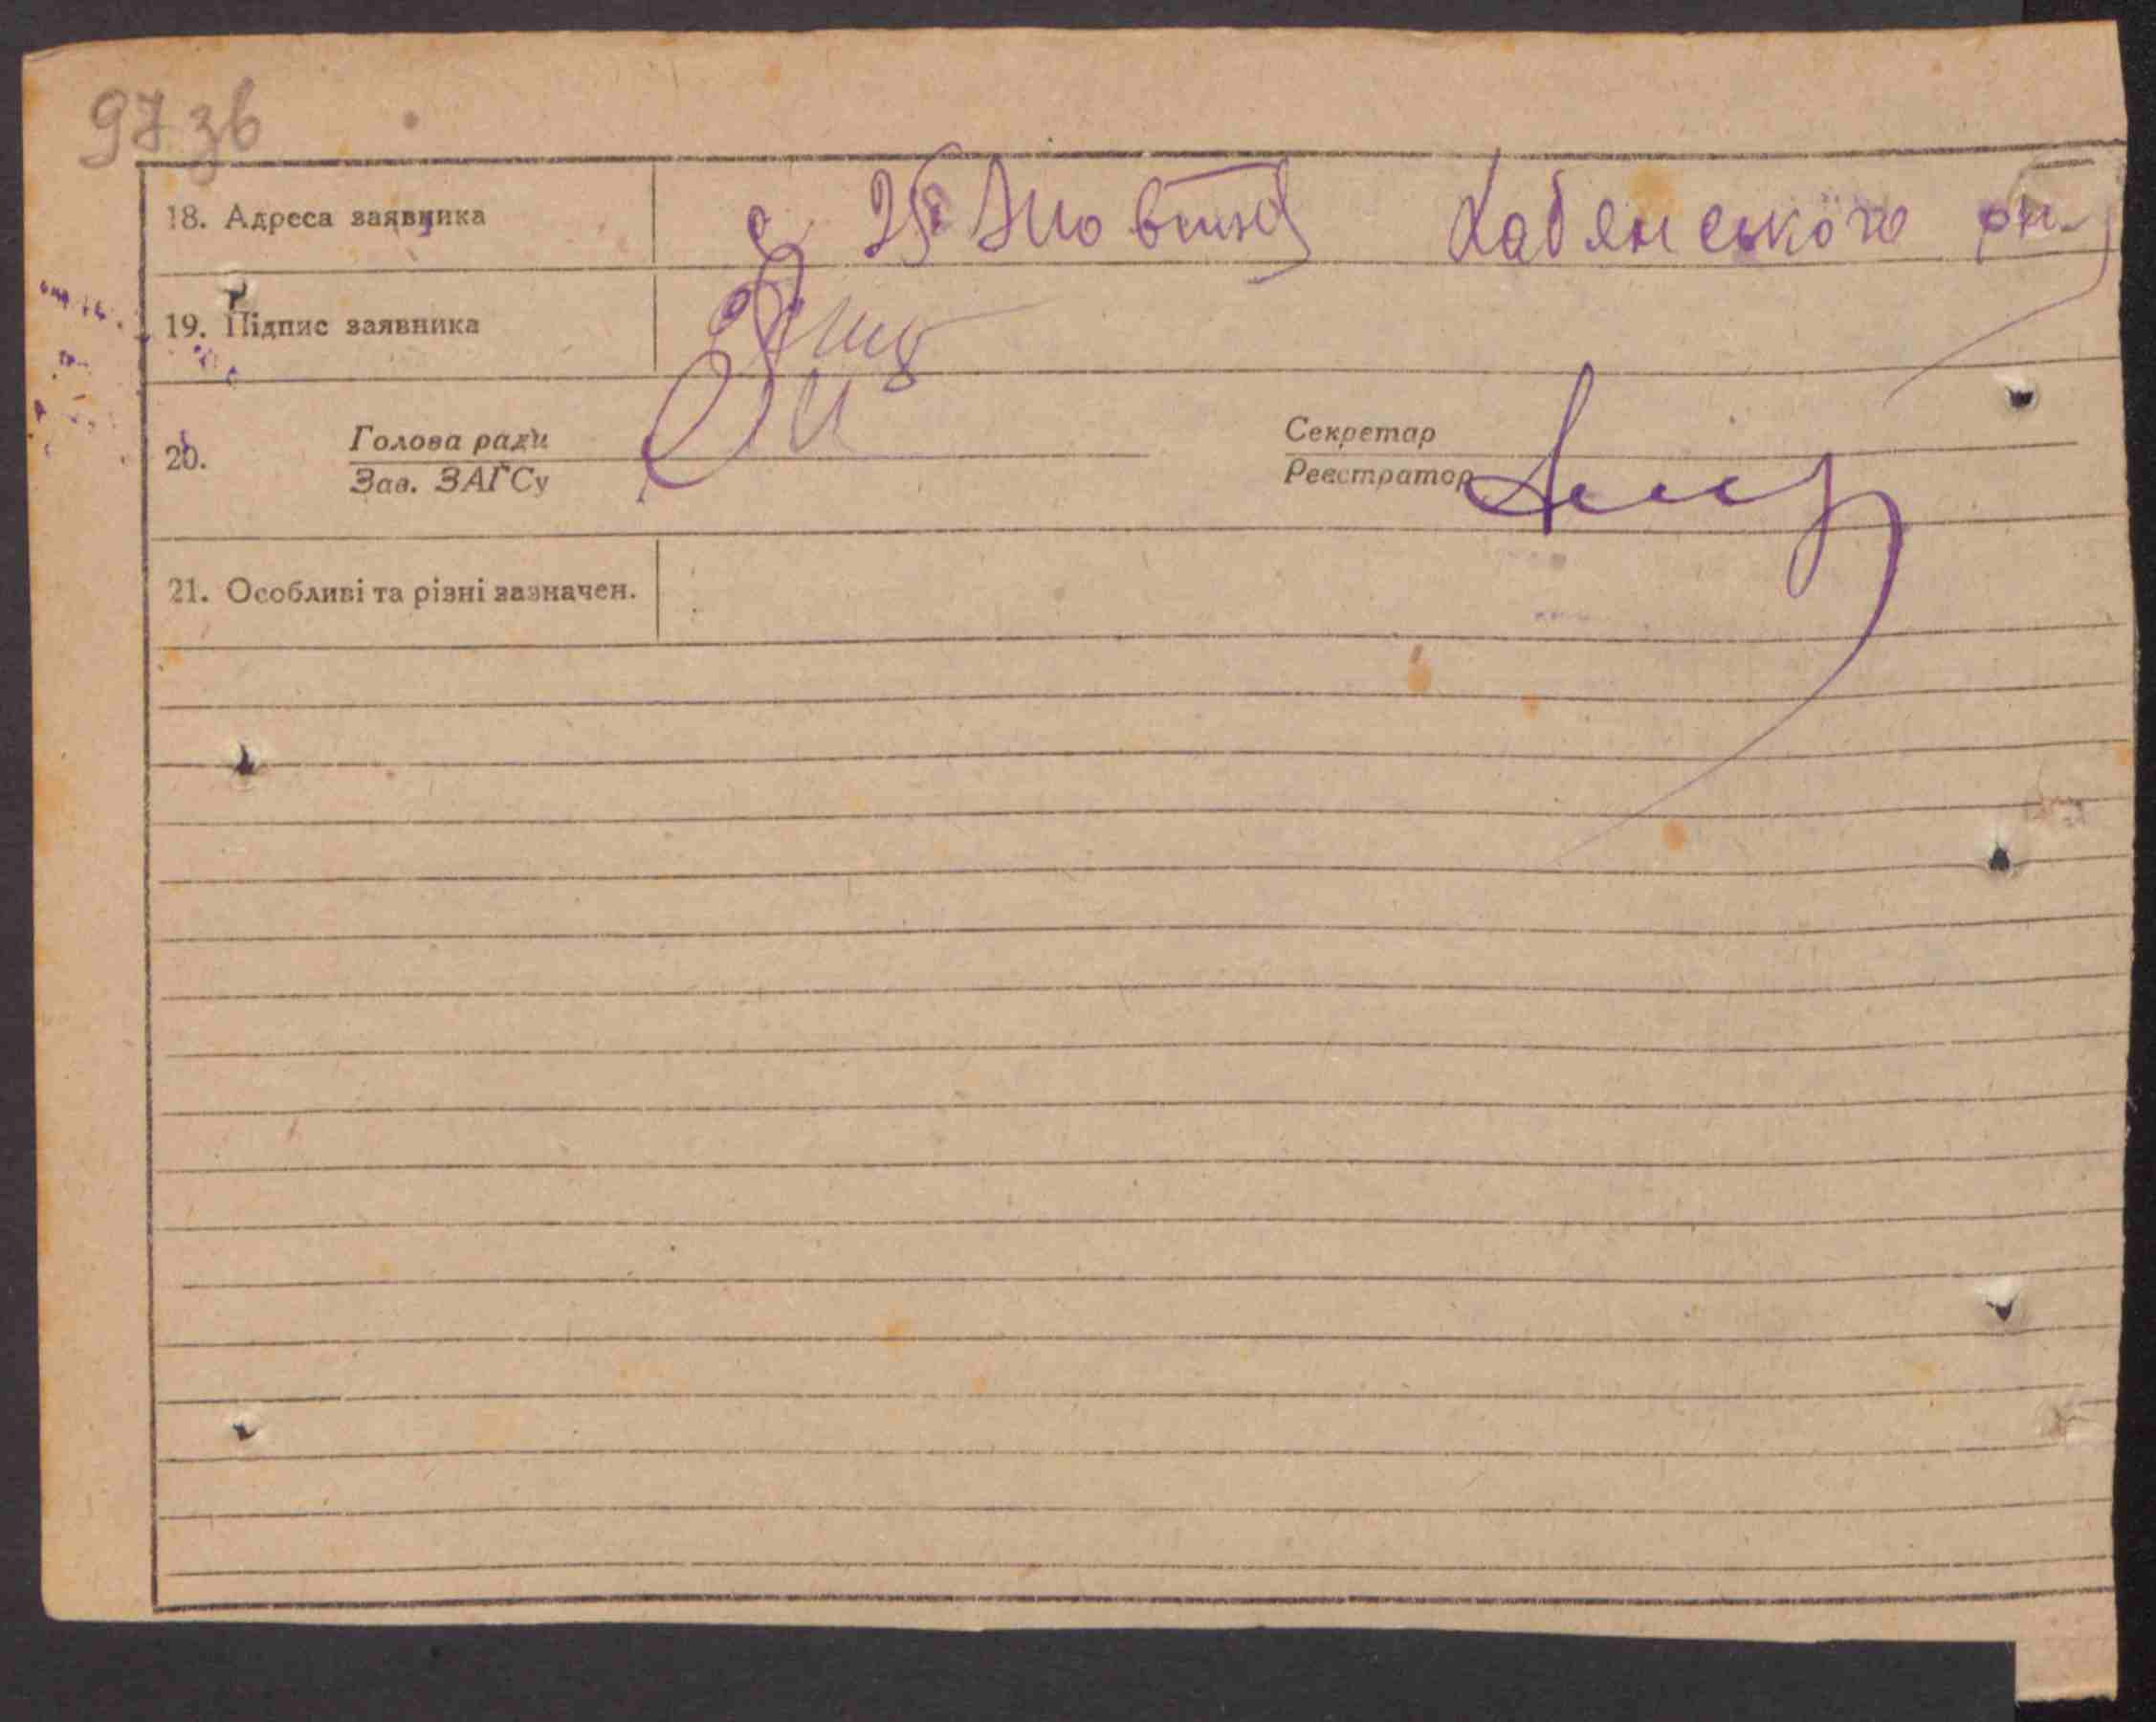 97 зв
18. Адреса заявника с. 25 Жовтня Хабянського рн.
19. Підпис заявника
20. Голова ради Секретар
Зав. ЗАГСу Реєстратор
21. Особливі та різні зазначен.